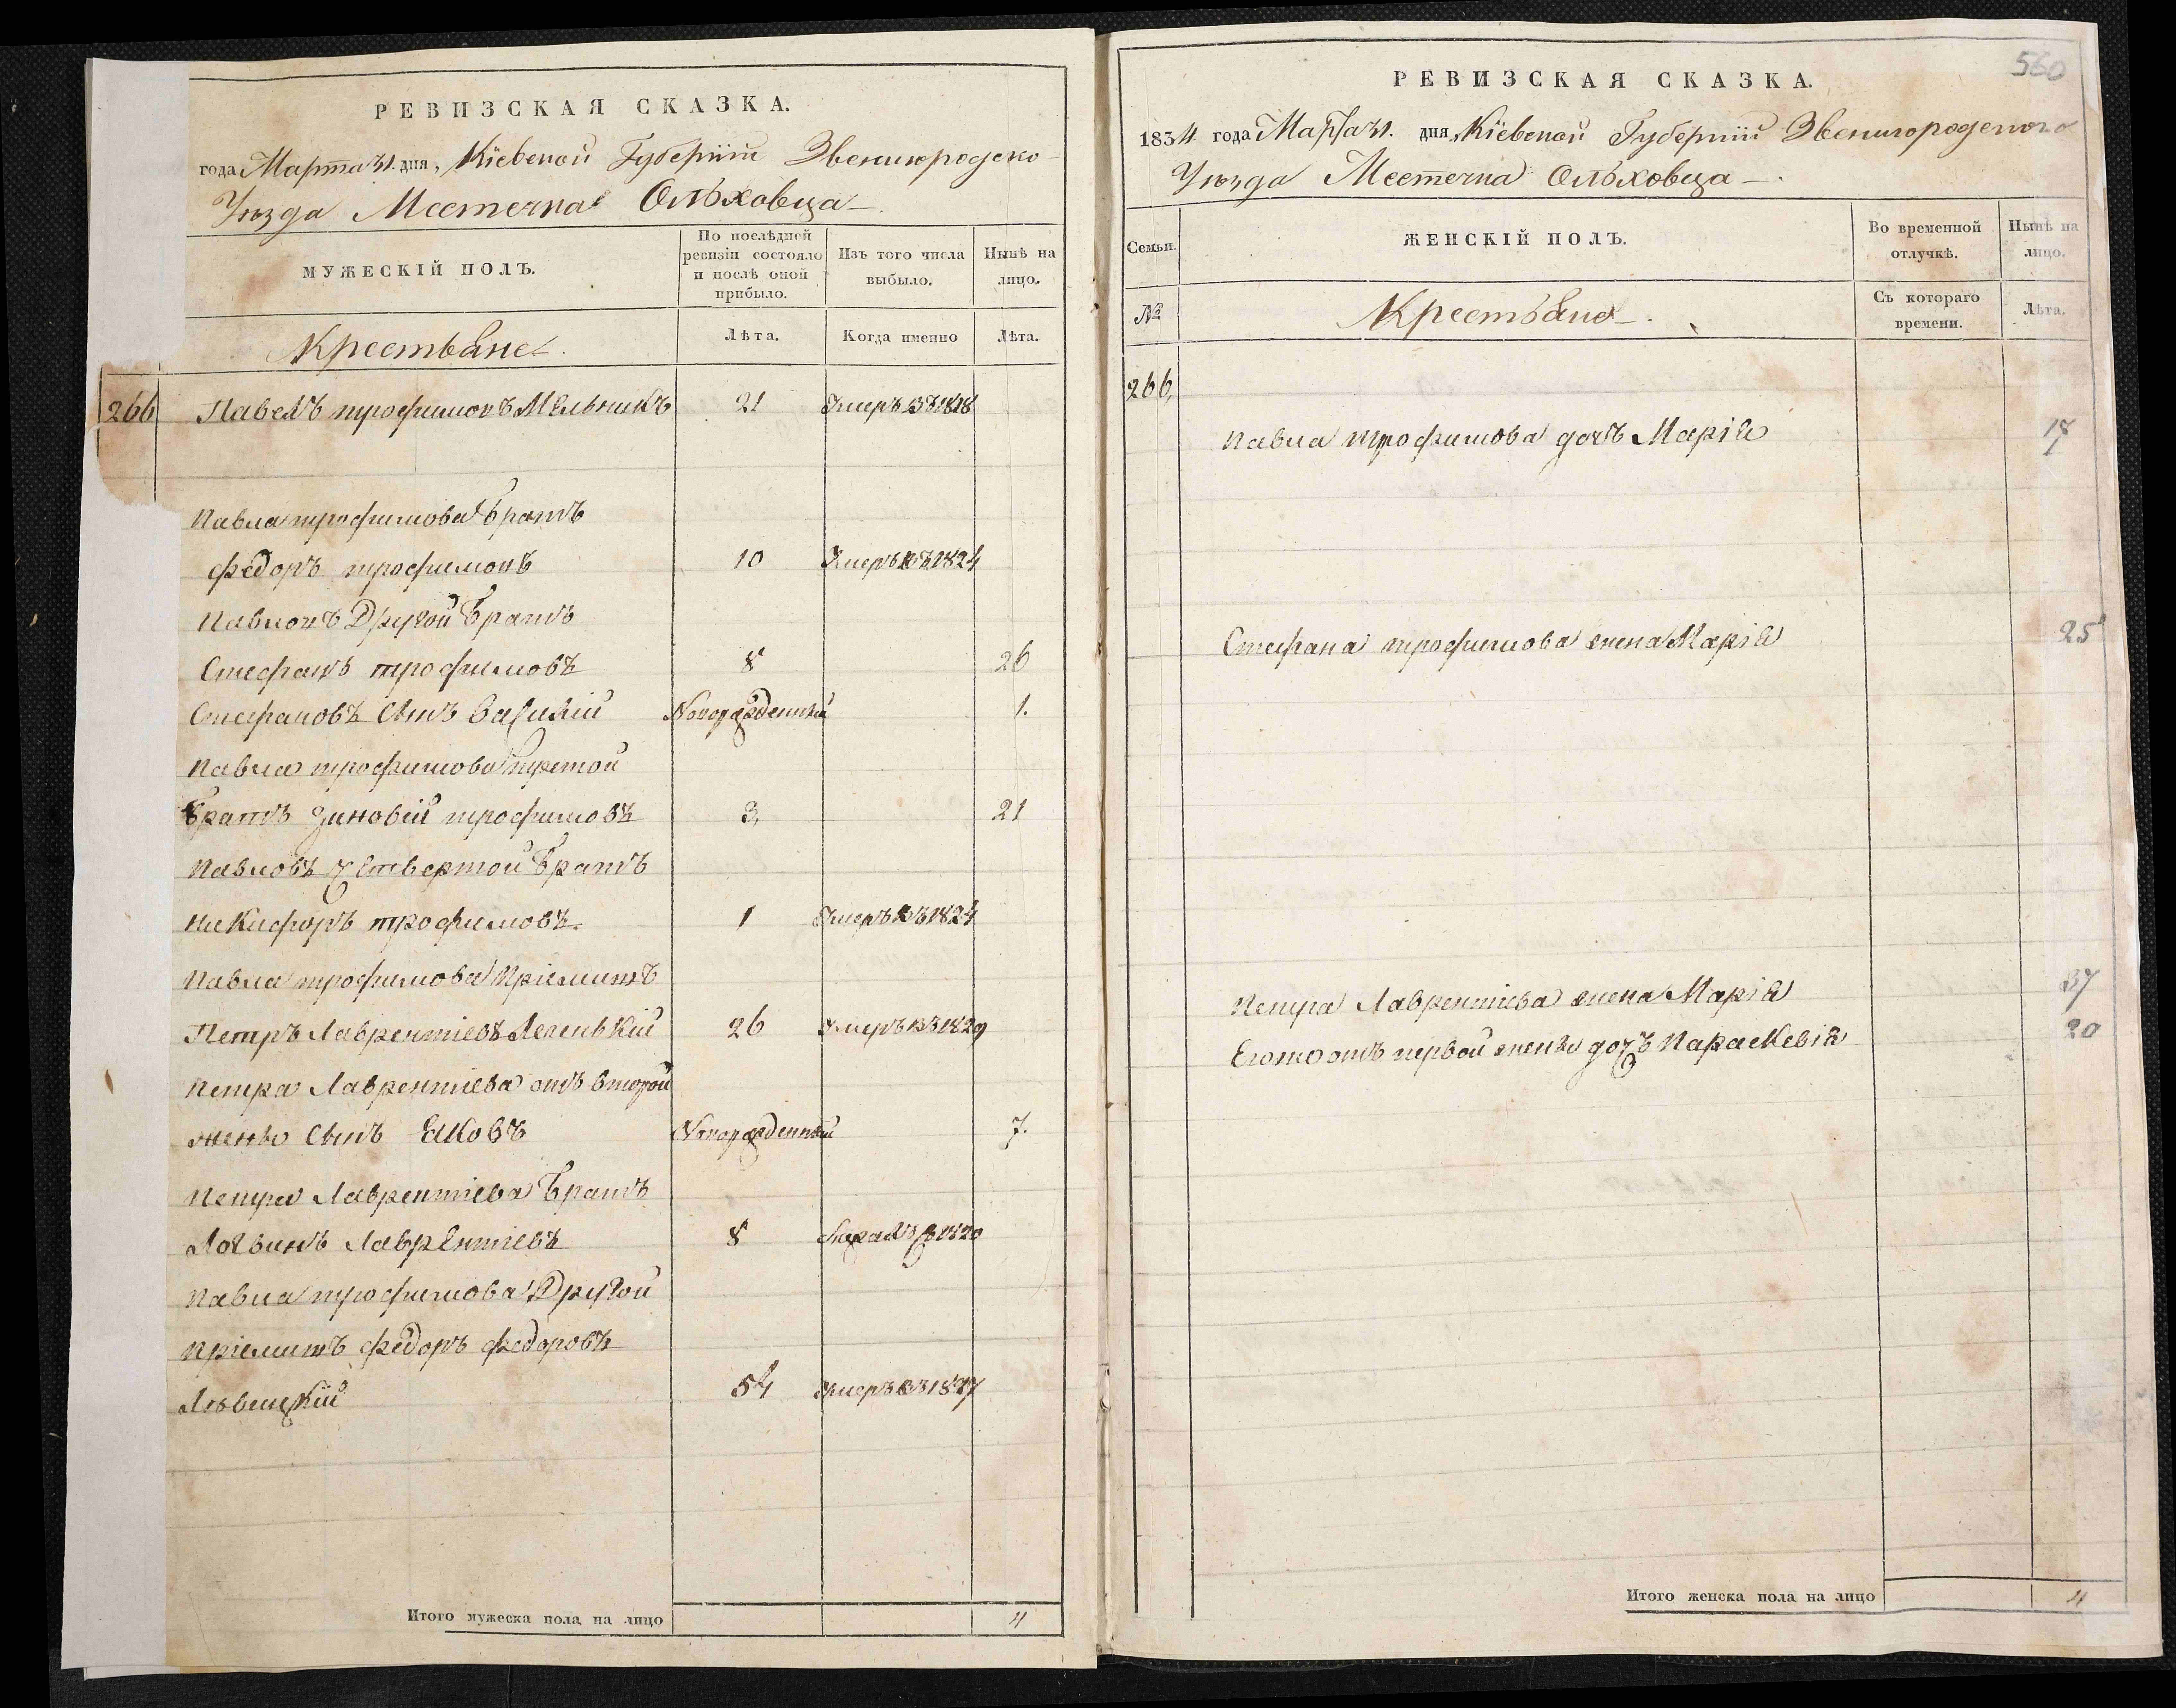 РЕВИЗСКАЯ СКАЗКА.
года Марта 31. дня, Кіевской Губерніи Звенигородско-
Уѣзда Местечка Ольховца
МУЖЕСКІЙ ПОЛЪ.
По послѣдней ревизіи состояло и послѣ оной прибыло.
Изъ того числа выбыло.
Нынѣ на лицо.
Крестьяне
Лѣта.
Когда именно
Лѣта.
266 Павелъ трофимовъ Мельникъ 21 Умеръ въ 1818
Павла трофимова братъ
федоръ трофимовъ 10 Умеръ въ 1824
Павловъ Другой братъ
Стефанъ трофимовъ 8 26
Стефановъ сынъ Василій Новорожденный 1.
Павла трофимова третой
братъ Зиновій трофимовъ 3, 21
Павловъ Четвертой братъ
Никифоръ трофимовъ 1 Умеръ въ 1824
Павла трофимова пріемишъ
Петръ Лаврентіевъ Легенькій 26 Умеръ въ 1829
Петра Лаврентіева отъ второй
жены сынъ Яковъ Новорожденный 7.
Петра Лаврентіева братъ
Логвинъ Лаврентіевъ 8 1820
Павла трофимова Другой
пріемишъ федоръ федоровъ
54 Умеръ въ 1827
Итого мужеска пола на лицо 4
560
РЕВИЗСКАЯ СКАЗКА.
1834 года Марта 31. дня, Кіевской Губерніи Звенигородского
Уѣзда Местечка Ольховца
Семьи.
ЖЕНСКІЙ ПОЛЪ.
Во временной отлучкѣ.
Нынѣ на лицо.
№
Крестьяне
Съ котораго времени.
Лѣта.
266,
Павла трофимова дочь Марія 17
Стефана трофимова жена Марія 25
Петра Лаврентіева жена Марія 37
Егото отъ первой жены дочь Параскевія 20
Итого женска пола на лицо 4